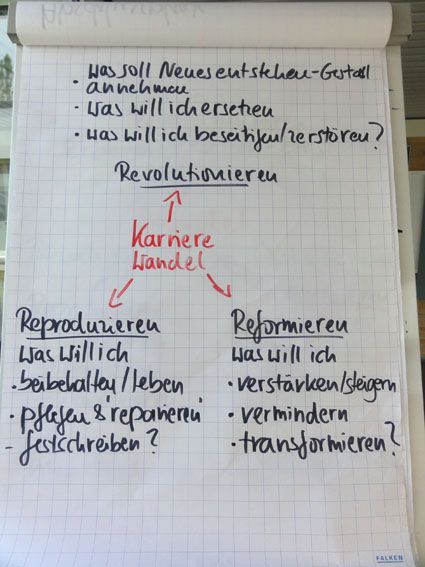 was soll Neues entstehen - Gestalt
annehmen
• was will ich ersetzen
• was will ich beseitigen/zerstören?
Revolutionieren
Karriere
Wandel
Reproduzieren
was will ich
• beibehalten/leben
• pflegen & "reparieren"
- festschreiben?
Reformieren
was will ich
• verstärken/steigern
• vermindern
• transformieren?
FALKEN